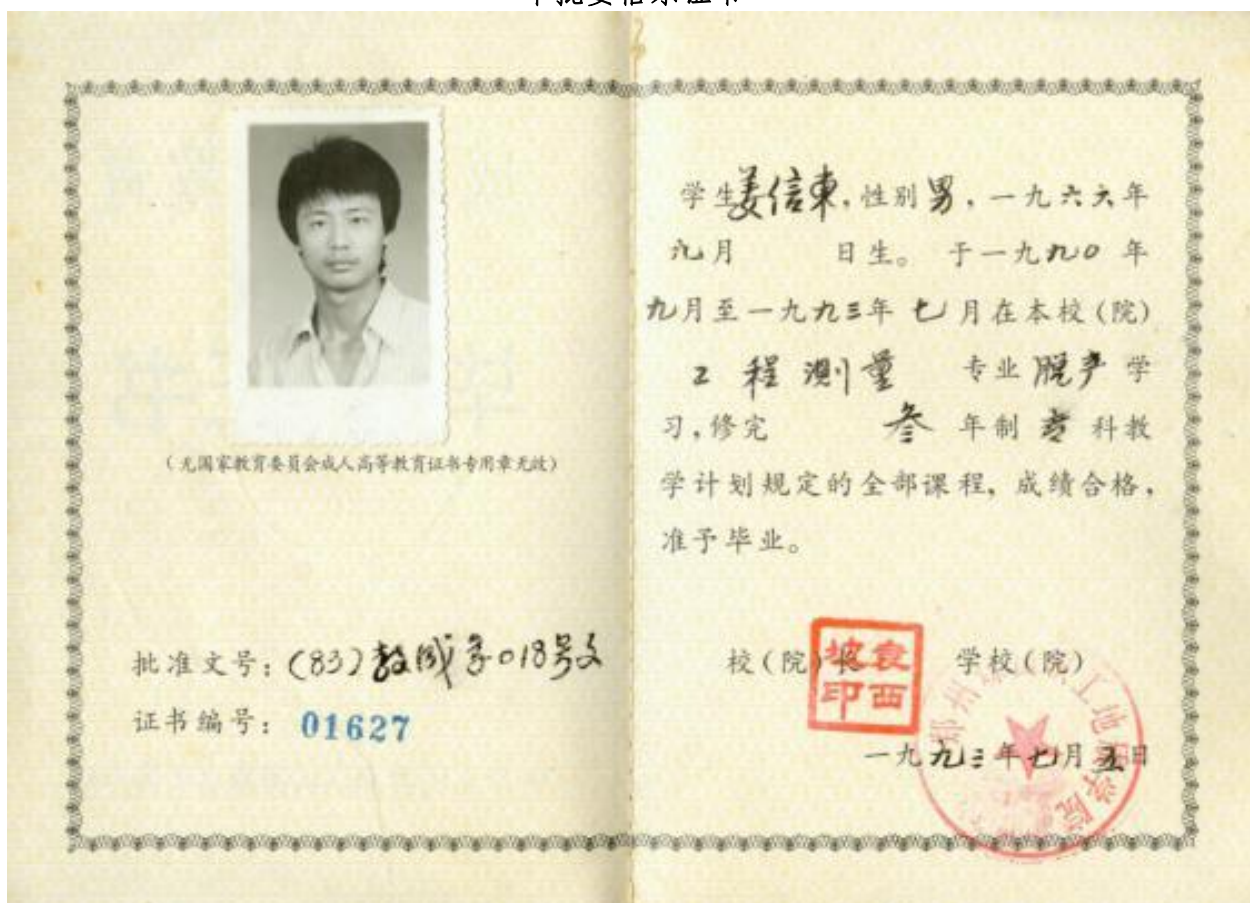 (无国家教育委员会成人高等教育证书专用章无效)
批准文号：(83)教成字018号文
证书编号：01627
学生姜信東，性别男，一九六六年
九月 日生。于一九九0年
九月至一九九三年七月在本校(院)
工程测量 专业脱产学
习，修完 叁年制专科教
学计划规定的全部课程，成绩合格，
准予毕业。
校(院)长 学校(院)
袁西坡印
一九九三年七月五日
郑州 工地 学院